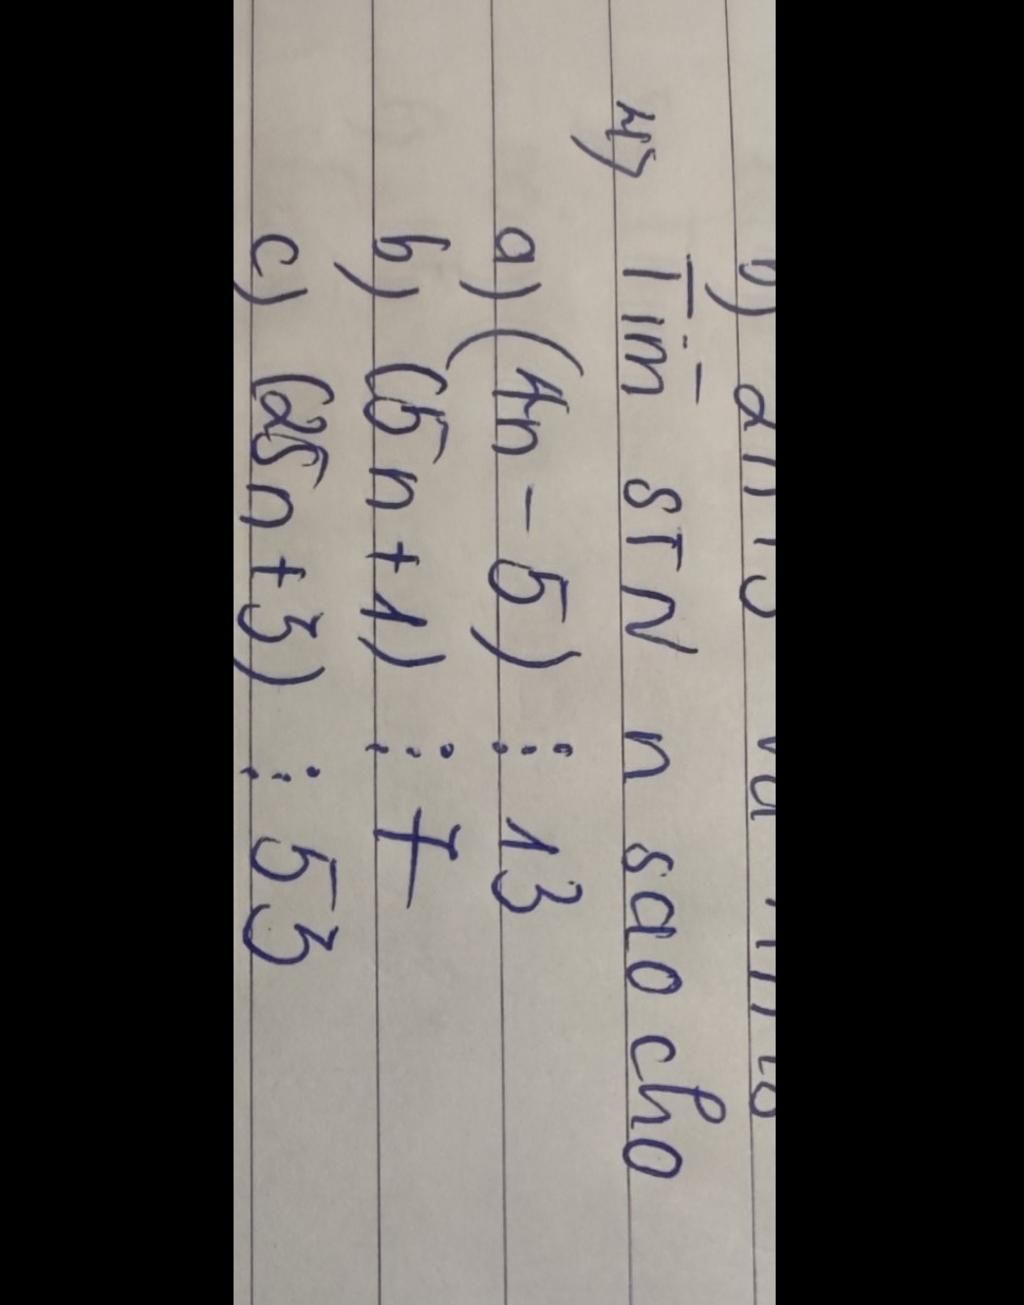 4) Tìm STN n sao cho
a) (4n - 5) ⋮ 13
b) (5n + 1) ⋮ 7
c) (25n + 3) ⋮ 53